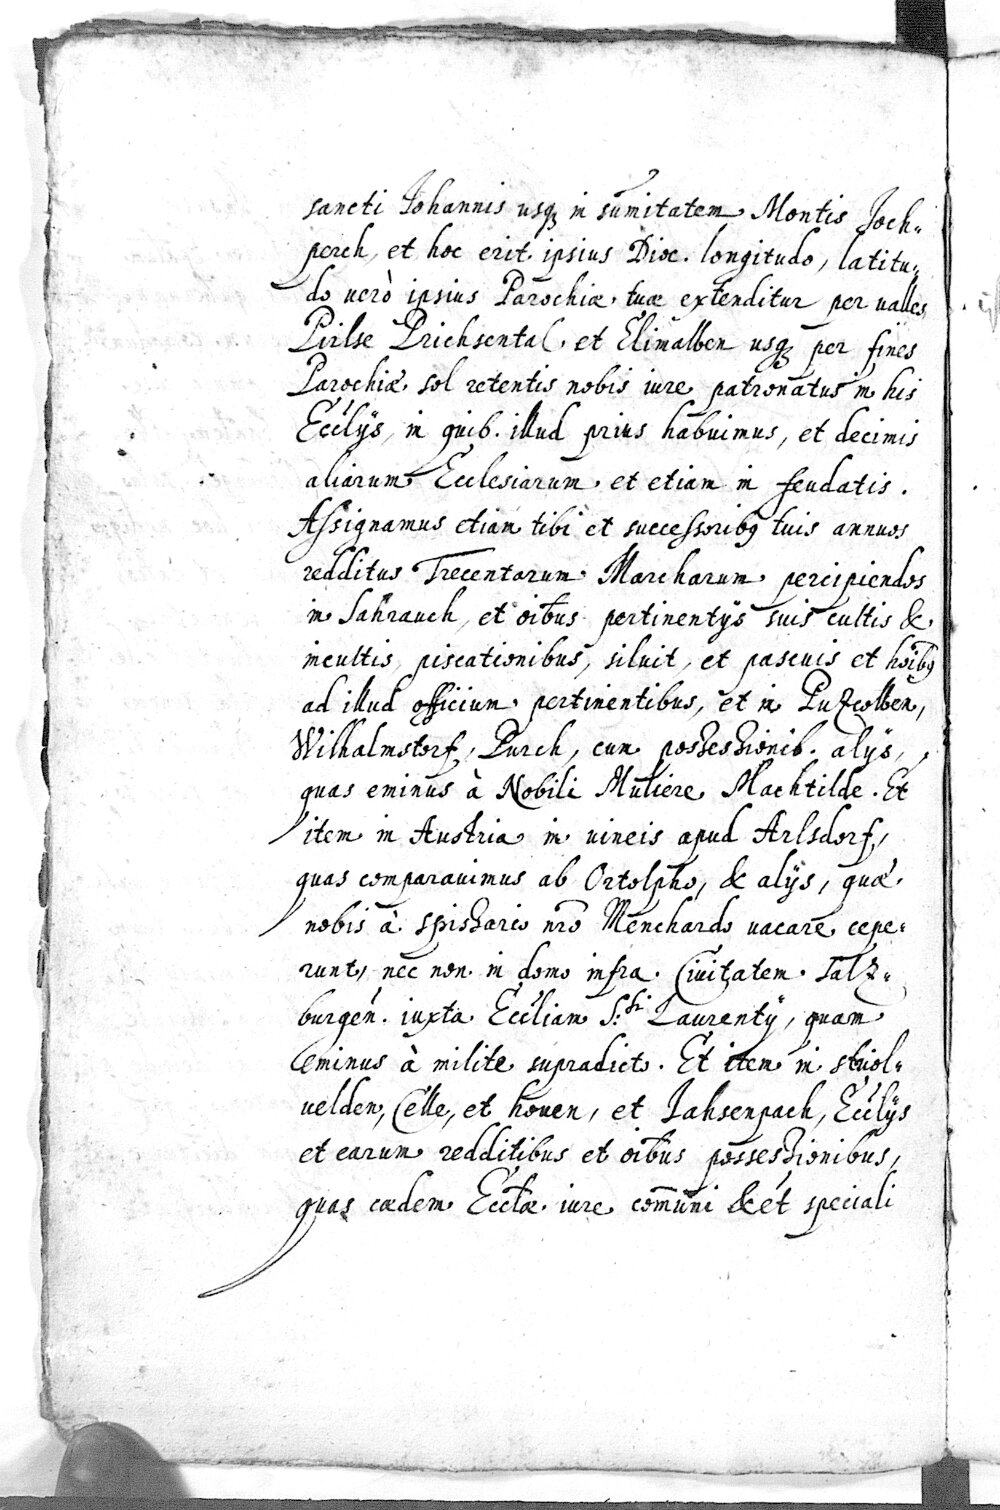 sancti Johannis usq₃ in sum̃itatem Montis Joch-
perch, et hoc erit ipsius Dioc. longitudo, latitu-
do uerò ipsius Parochiæ tuæ extenditur per ualles
Pirlse Prichsental et Elimalben usq₃ per fines
Parochiæ. sol retentis nobis iure patronatus in his
Eccl̃ijs, in quib. illud prius habuimus, et decimis
aliarum Ecclesiarum et etiam in feudatis.
Assignamus etiam tibi et successorib₉ tuis annuos
redditus Trecentarum Marcharum percipiendos
in Sahrauch, et oib̃us pertinentijs suis cultis &
incultis, piscationibus, siluit, et pascuis et hoib̃₉
ad illud officium pertinentibus, et in Puzcolben,
Wilhalmstorf, Purch, cum possessionib. alijs,
quas eminus à Nobili Muliere Machtilde. Et
item in Austria in uineis apud Arlsdorf,
quas comparauimus ab Ortolpho, & alijs, quæ
nobis à Spishario nr̃o Menchardo uacare cepe-
runt, nec non in domo infra Ciuitatem Salz-
burgeñ. iuxta Eccl̃iam S:ti Laurentij, quam
eminus à milite supradicto. Et item in stuol-
uelden, Celle, et houen, et Jahsenpach, Eccl̃ijs
et earum redditibus et oib̃us possessionibus,
quas eædem Eccl̃æ iure com̃uni & ét speciali